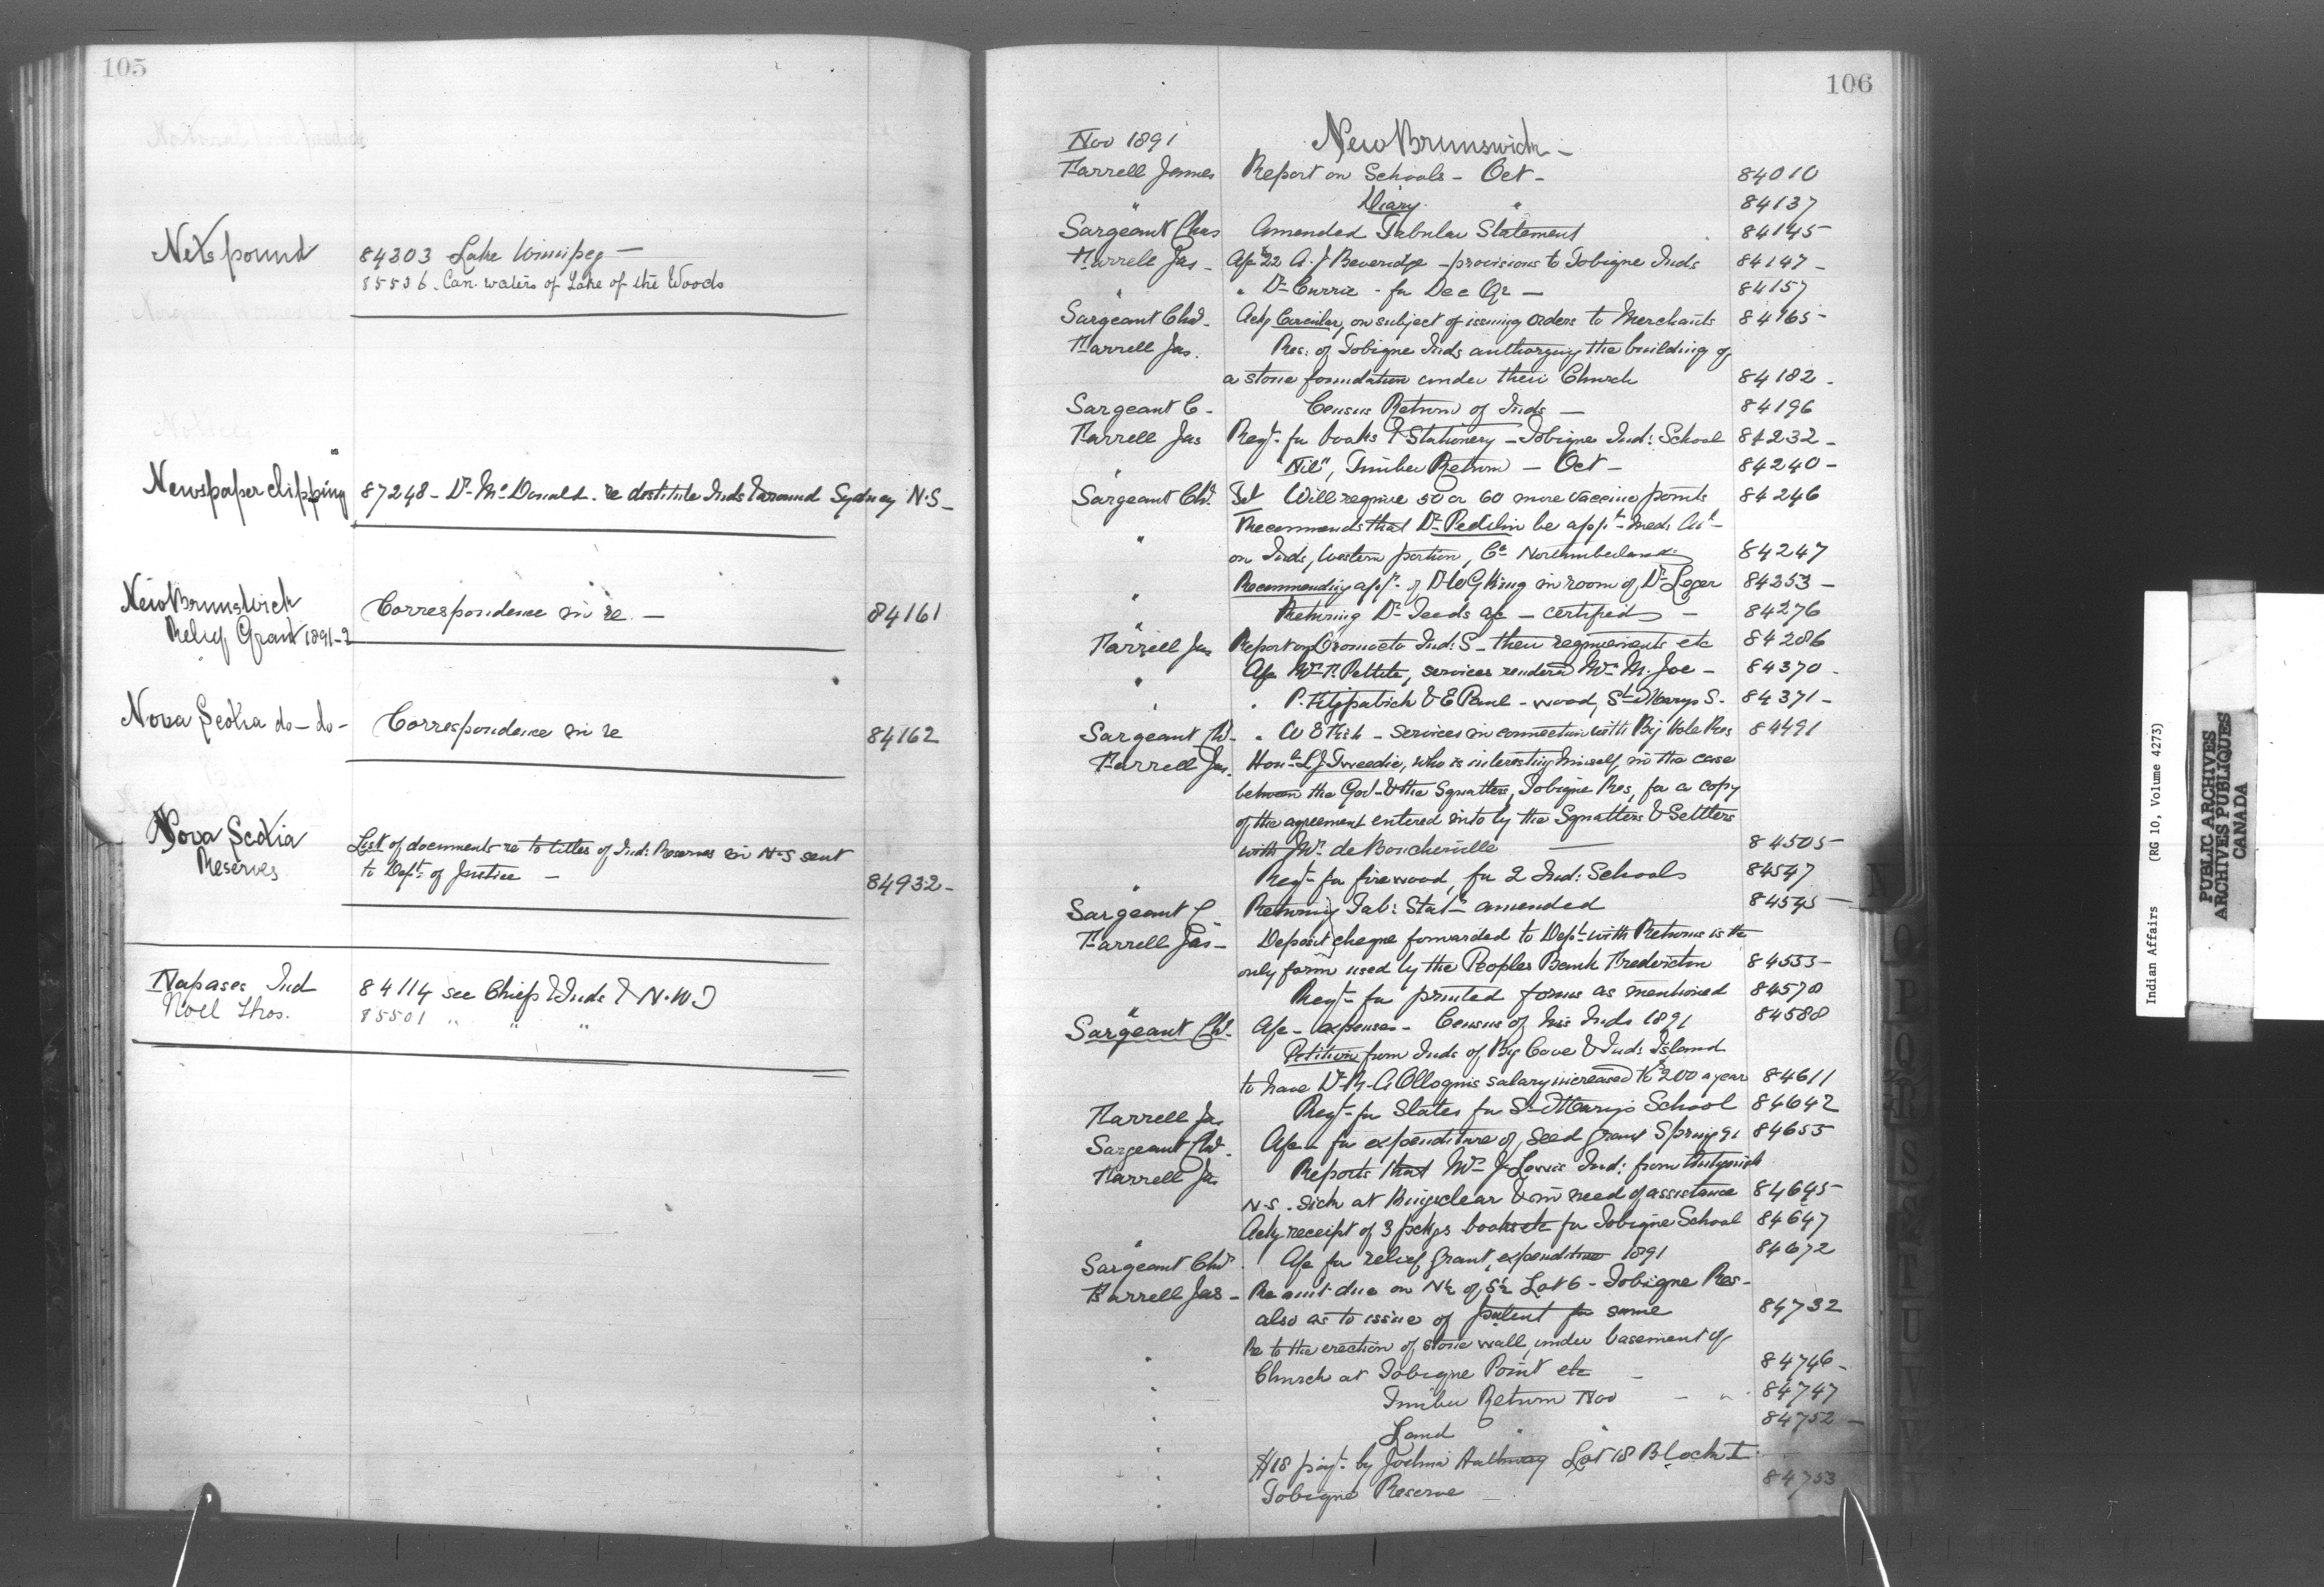 105
Nets pound
84203 Lake Winnipeg —
85536 . Can. waters of Lake of the Woods
Newspaper clipping 87248 - Dr. McDonald . re destitute Inds around Sydney N.S -
New Brunswick
Relief Grant 1891-2
Correspondence in re — 84161
Nova Scotia do - do - Correspondence in re 84162
Nova Scotia
Reserves
List of documents re to titles of Ind: Reserves in N-S sent
to Dept. of Justice — 84932 -
Napases Ind 84114 see Chiefs & Inds & N.W.T
Noel Thos. 85501 " " "
106
Nov 1891 New Brunswick -
Farrell James Report on Schools - Oct - 84010
" Diary " 84137
Sargeant Chas Amended Tabular Statement 84145 -
Farrell Jas - A/c 22 A. J Beveridge - provisions to Tobique Inds 84147 -
" " Dr Currie - for Dec Qr — 84157
Sargeant Chs - Ackg Circular, on subject of issuing orders to Merchants 84165 -
Farrell Jas. Res: of Tobique Inds authorizing the building of
a stone foundation under their Church 84182 -
Sargeant C - Census Return of Inds — 84196
Farrell Jas Reqt. for books & Stationery - Tobique Ind: School 84232 -
" "Nil", Timber Return - Oct - 84240 -
Sargeant Chs. Will require 50 or 60 more vaccine points 84246
" Recommends that Dr. be appt. Med:
on Inds, Western portion, Co Northumberland 84247
" Recommending appt. of Dr W G King in room of Dr Leger 84253 -
" Returning Dr a/c - certified - 84276
Farrell Jas Report on Oromocto Ind: S - their requirements etc 84286
" A/c Pettite, services rendered M. Joe - 84370 -
" " P. Fitzpatrick & E Paul - wood, St Marys S. 84371 -
Sargeant Chs - " W E Fish - Services in connection with Big Hole Res 84491
Farrell Jas. Honble L J Tweedie, who is interesting himself in the case
between the Govt. & the Squatters, Tobique Res, for a copy
of the agreement entered into by the Squatters & Settlers
with Mr. de Boucherville — 84505 -
" Reqt. for firewood for 2 Ind: Schools 84547
Sargeant C - Returning Tab: Stat. amended 84545 -
Farrell Jas - Deposit cheque forwarded to Dept. with Returns is the
only form used by the Peoples Bank Fredericton 84553 -
" Reqt. for printed forms as mentioned 84578
Sargeant Chs. A/c - expenses - Census of his Inds 1891 84588
Petition from Inds of Big Cove & Inds Island
to have Dr R. A Olloqui's salary increased to $200 a year 84611
Farrell Jas Reqt. for Slates for St Mary's School 84642
Sargeant Chs. A/c - for expenditure of Seed Grant Spring 91 84655
Farrell Jas Reports that J Lewis Ind: from Antigonish
N-S . sick at Kingsclear & in need of assistance 84645 -
" Ackg receipt of 3 pckgs books etc for Tobique School 84647
Sargeant Chs. A/c for relief grant expenditure 1891 84672
Farrell Jas - Re amt due on N½ of S½ Lot 6 - Tobique Res -
also as to issue of patent for same 84732
" Re to the erection of stone wall under basement of
Church at Tobique Point etc - 84746 -
" Timber Return Nov - " 84747
" Land " 84752 -
" $18 payt. by Joshua Lot 18 Block I
" Tobique Reserve — 84753
N
O
P
Q
R
S
T
U
V
W
Indian Affairs (RG 10, Volume 4273)
PUBLIC ARCHIVES
ARCHIVES PUBLIQUES
CANADA